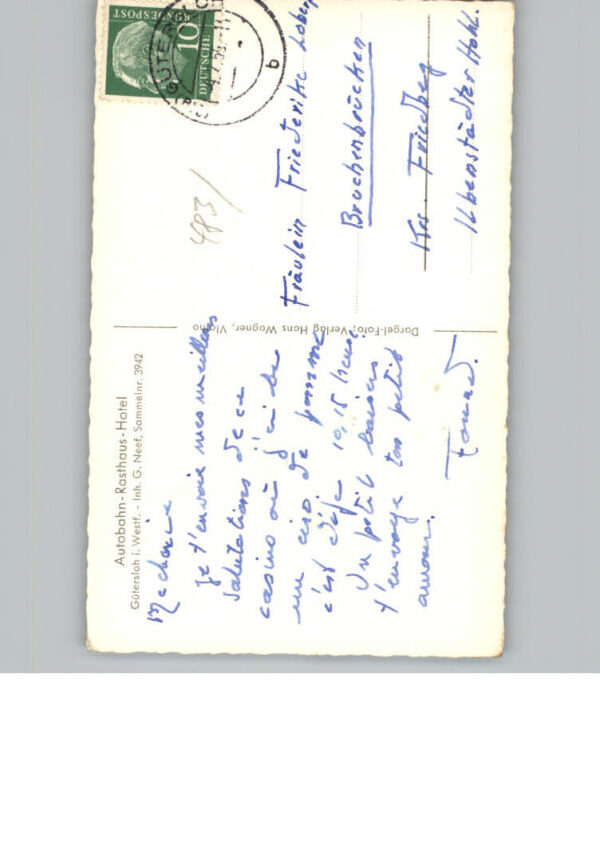 Autobahn-Rasthaus-Hotel
Gütersloh i. Westf. - Inh. G. Neef, Sammelnr. 3942
Ma cherie
je t'envoie mes meilleurs
salutations de ce
casino où j'ai bu
un de pomme
c'est déja 10,15 heur.
Un petit baiser
t'envoye ton petit
amour.
Dargel-Foto, Verlag Hans Wagner, Vlotho
DEUTSCHE
BUNDESPOST
10
GÜTERSLOH
b
483/
Fräulein Friederike
Bruchenbrücken
Krs. Friedberg
Ilbenstädter Hohl.